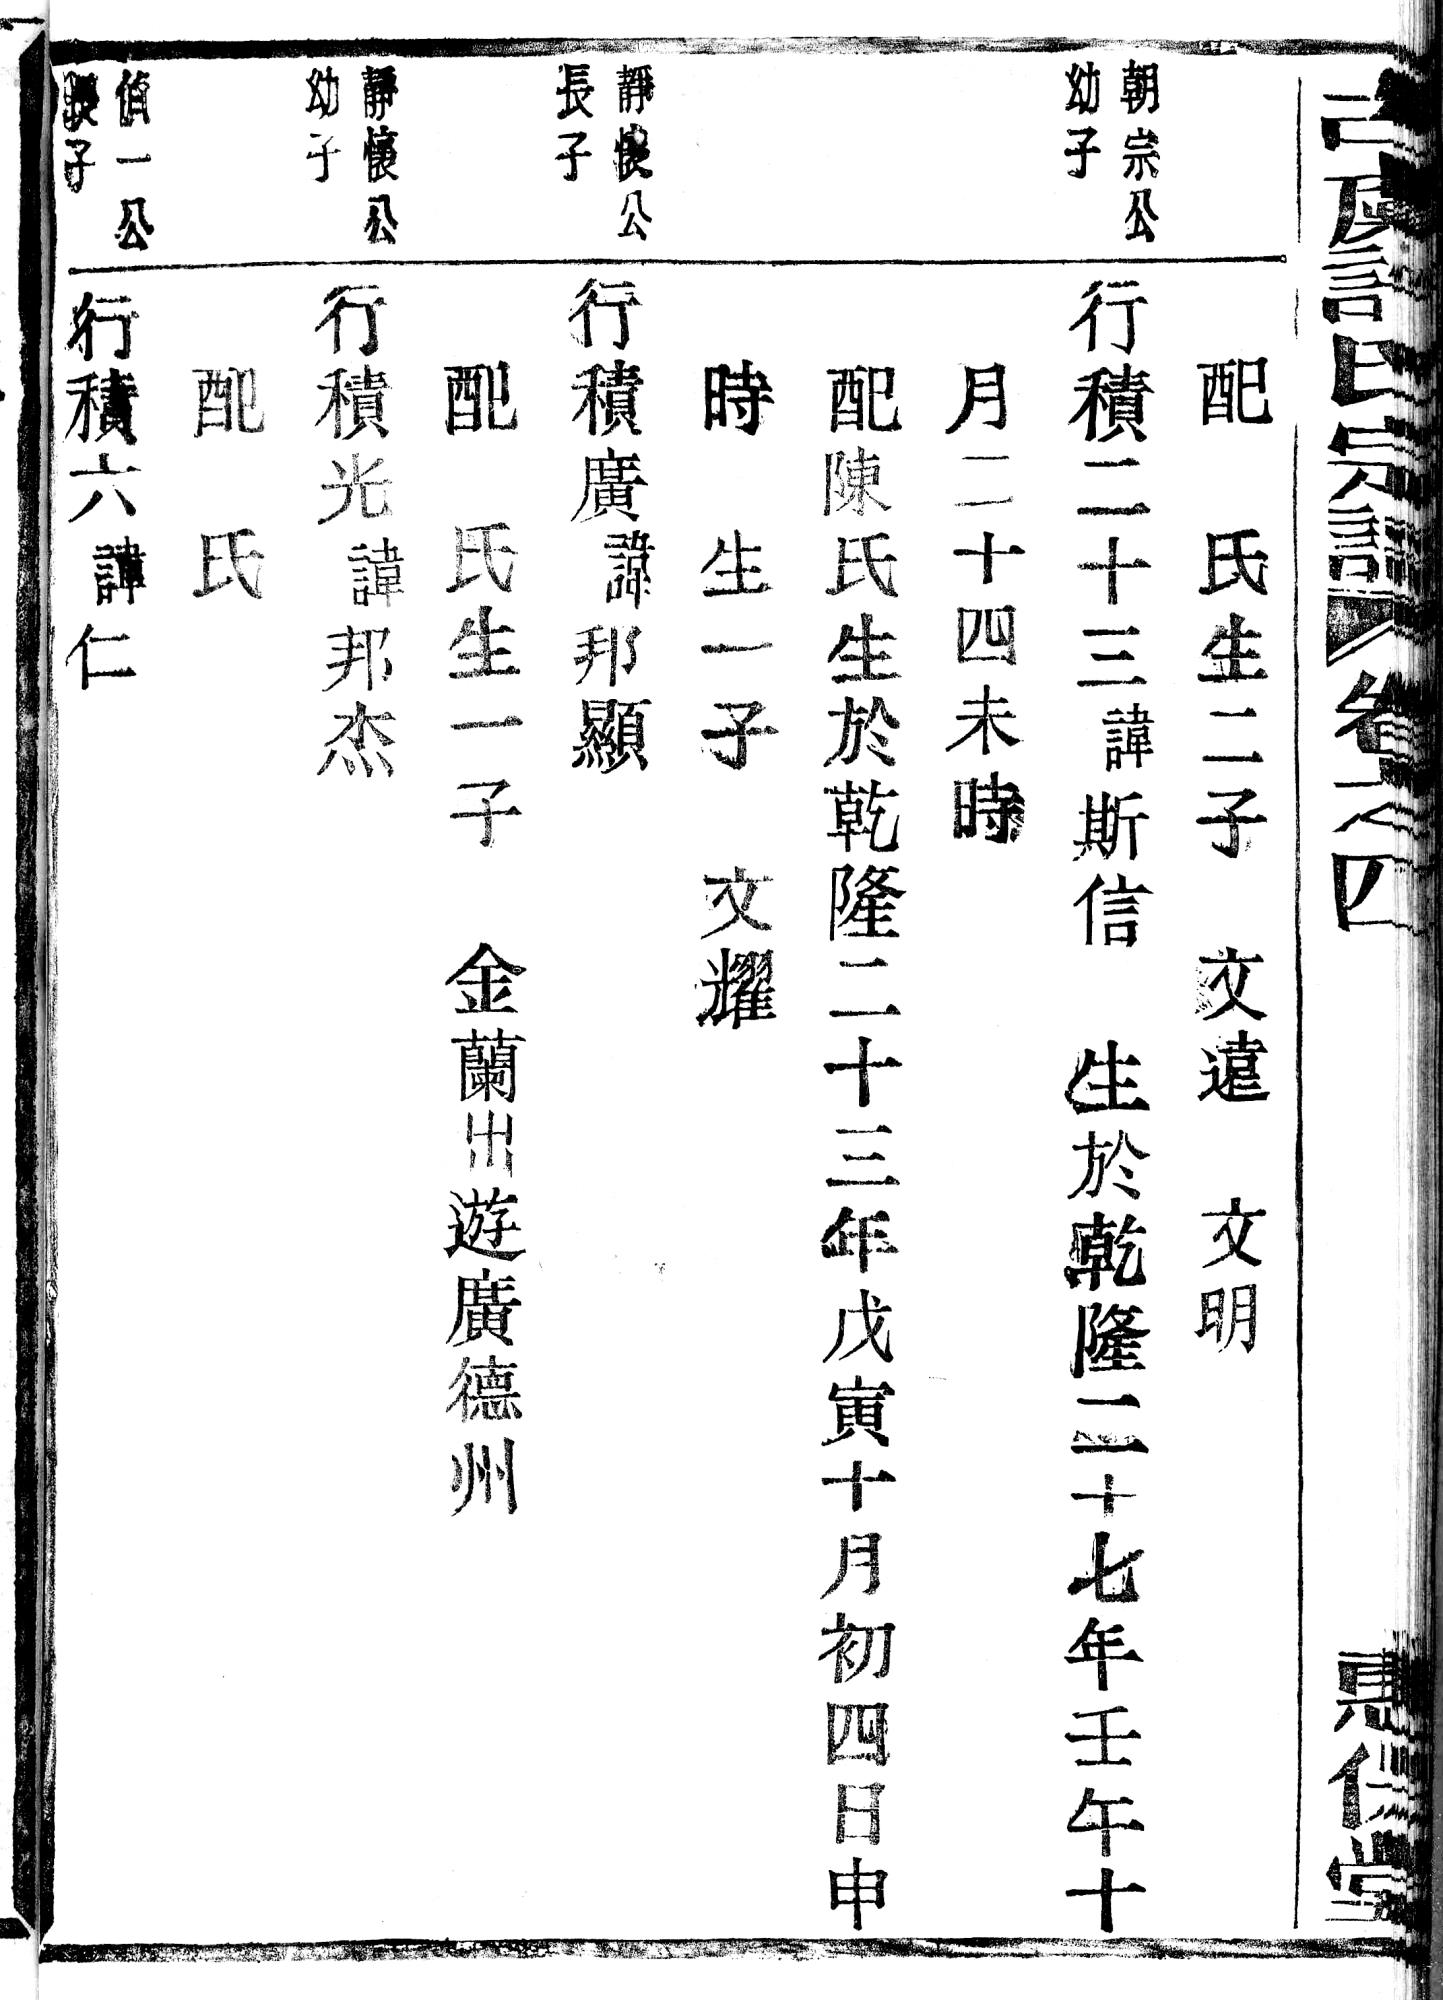 氏宗譜 卷之四
惠仁堂
配　氏生二子　文遠　文明
朝宗公
幼子
行積二十三諱斯信　生於乾隆二十七年壬午十
月二十四未時
配陳氏生於乾隆二十三年戊寅十月初四日申
時　生一子　文耀
靜懷公
長子
行積廣諱邦顯
配　氏生一子　金蘭出遊廣德州
靜懷公
幼子
行積光諱邦杰
配　氏
一公
長子
行積六諱仁